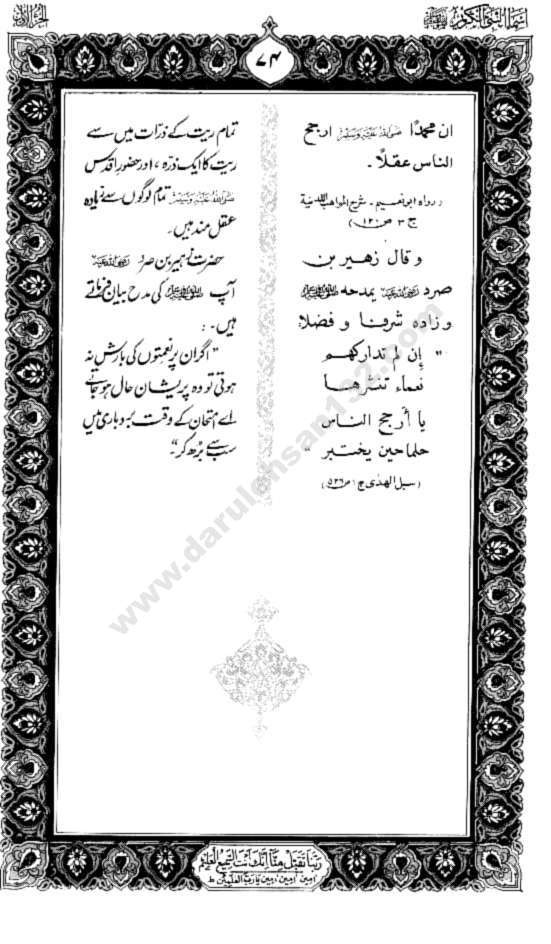 اسماء النبي الكريم ﷺ
الجزء الاول
۷۴
ان محمدًا صَلَّىاللهُ عَلَيْهِوَسَلَّمَ ارجح
الناس عقلاً۔
(رواه ابو نعيم ۔ شرح المواهب اللدنية
ج ۳ ص ۱۲۰)
و قال زهير بن
صرد رضى الله عنه يمدحه ﷺ
و زاده شرفا و فضلا
" إن لم تداركهم
نعماء تنشرها
يا أرجح الناس
حلما حين يختبر "
(سبل الهدى ج ۱ ص ۵۲۶)
تمام ریت کے ذرات میں سے
ریت کا ایک ذرہ ، اور حضور اقدس
صَلَّىاللهُ عَلَيْهِوَسَلَّمَ تمام لوگوں سے زیادہ
عقل مند ہیں۔
حضرت زہیر بن صرد رضى الله عنه
آپ ﷺ کی مدح بیان فرماتے
ہیں۔ :
"اگر ان پر نعمتوں کی بارش نہ
ہوتی تو وہ پریشان حال ہو جاتے
اے امتحان کے وقت بردباری میں
سب سے بڑھ کر"
www.darulehsan132.com
ربنا تقبل منا انك انت السميع العليم
امين، امين، امين يا رب العلمين ط